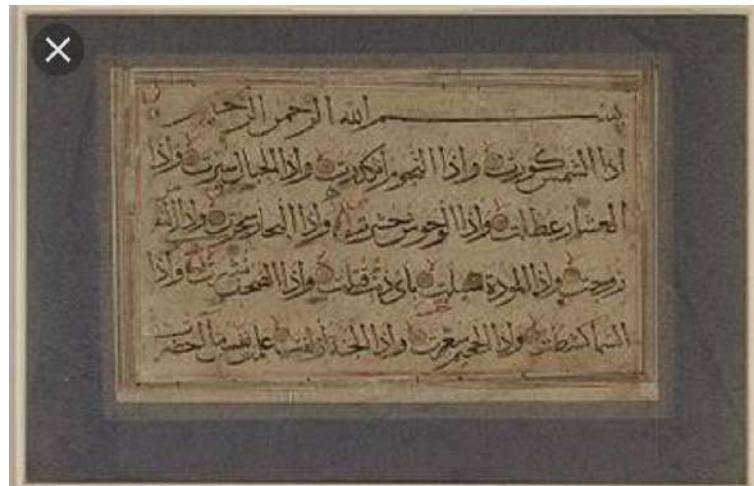 بسم الله الرحمن الرحيم
اذا الشمس كورت واذا النجوم انكدرت واذا الجبال سيرت واذا
العشار عطلت واذا الوحوش حشرت واذا البحار سجرت واذا النفوس
زوجت واذا الموءدة سئلت بأي ذنب قتلت واذا الصحف نشرت واذا
السما كشطت واذا الجحيم سعرت واذا الجنة أزلفت علمت نفس ما أحضرت